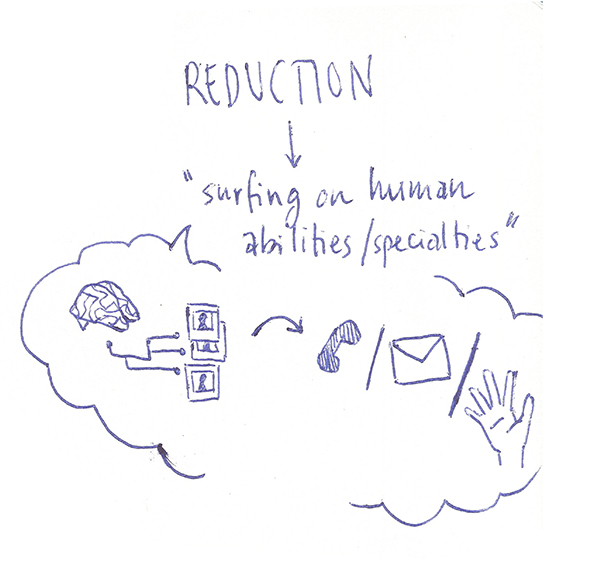 REDUCTION
"surfing on human
abilities/specialties"